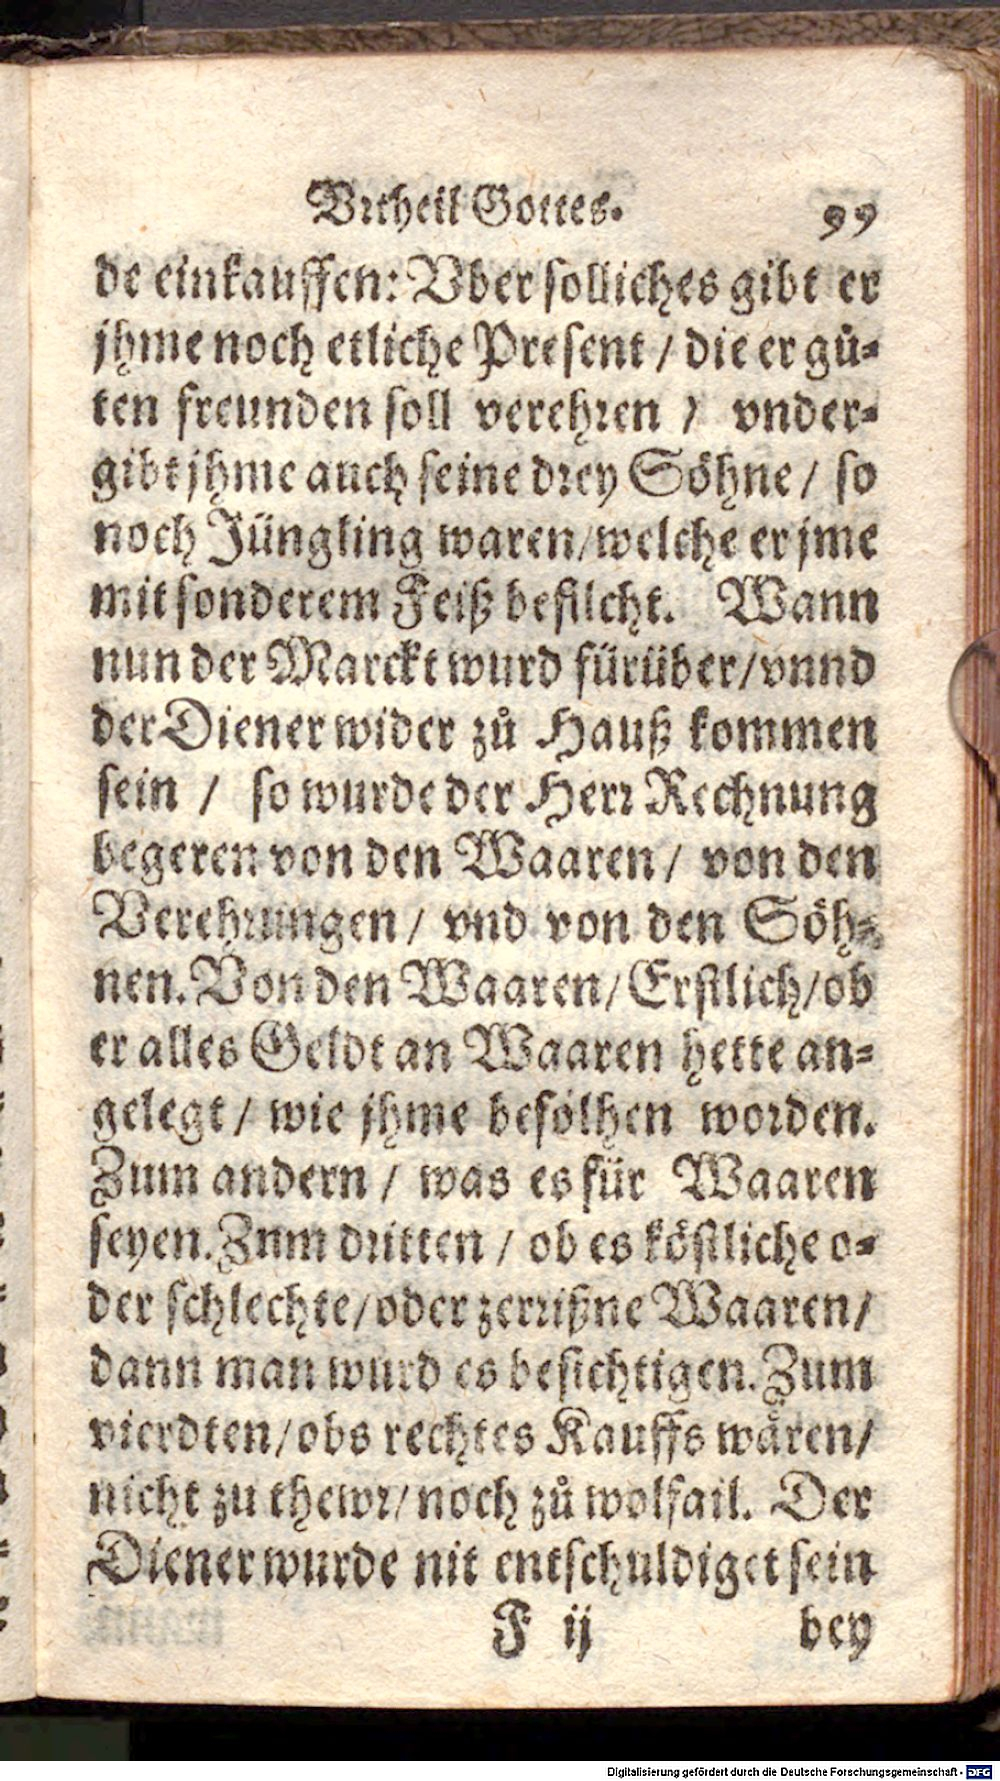 Vrtheil Gottes. 99
de einkauffen: Vber solliches gibt er
jhme noch etliche Present / die er gů-
ten freunden soll verehren / vnder-
gibt jhme auch seine drey Söhne / so
noch Jüngling waren / welche er jme
mit sonderem Feiß befilcht. Wann
nun der Marckt wurd fürüber / vnnd
der Diener wider zů Hauß kommen
sein / so wurde der Herr Rechnung
begeren von den Waaren / von den
Verehrungen / vnd von den Söh-
nen. Von den Waaren / Erstlich / ob
er alles Geldt an Waaren hette an-
gelegt / wie jhme befolhen worden.
Zum andern / was es für Waaren
seyen. Zum dritten / ob es köstliche o-
der schlechte / oder zerrißne Waaren /
dann man wurd es besichtigen. Zum
vierdten / obs rechtes Kauffs wåren /
nicht zu thewr / noch zů wolfail. Der
Diener wurde nit entschuldiget sein
F ij bey
Digitalisierung gefördert durch die Deutsche Forschungsgemeinschaft - DFG